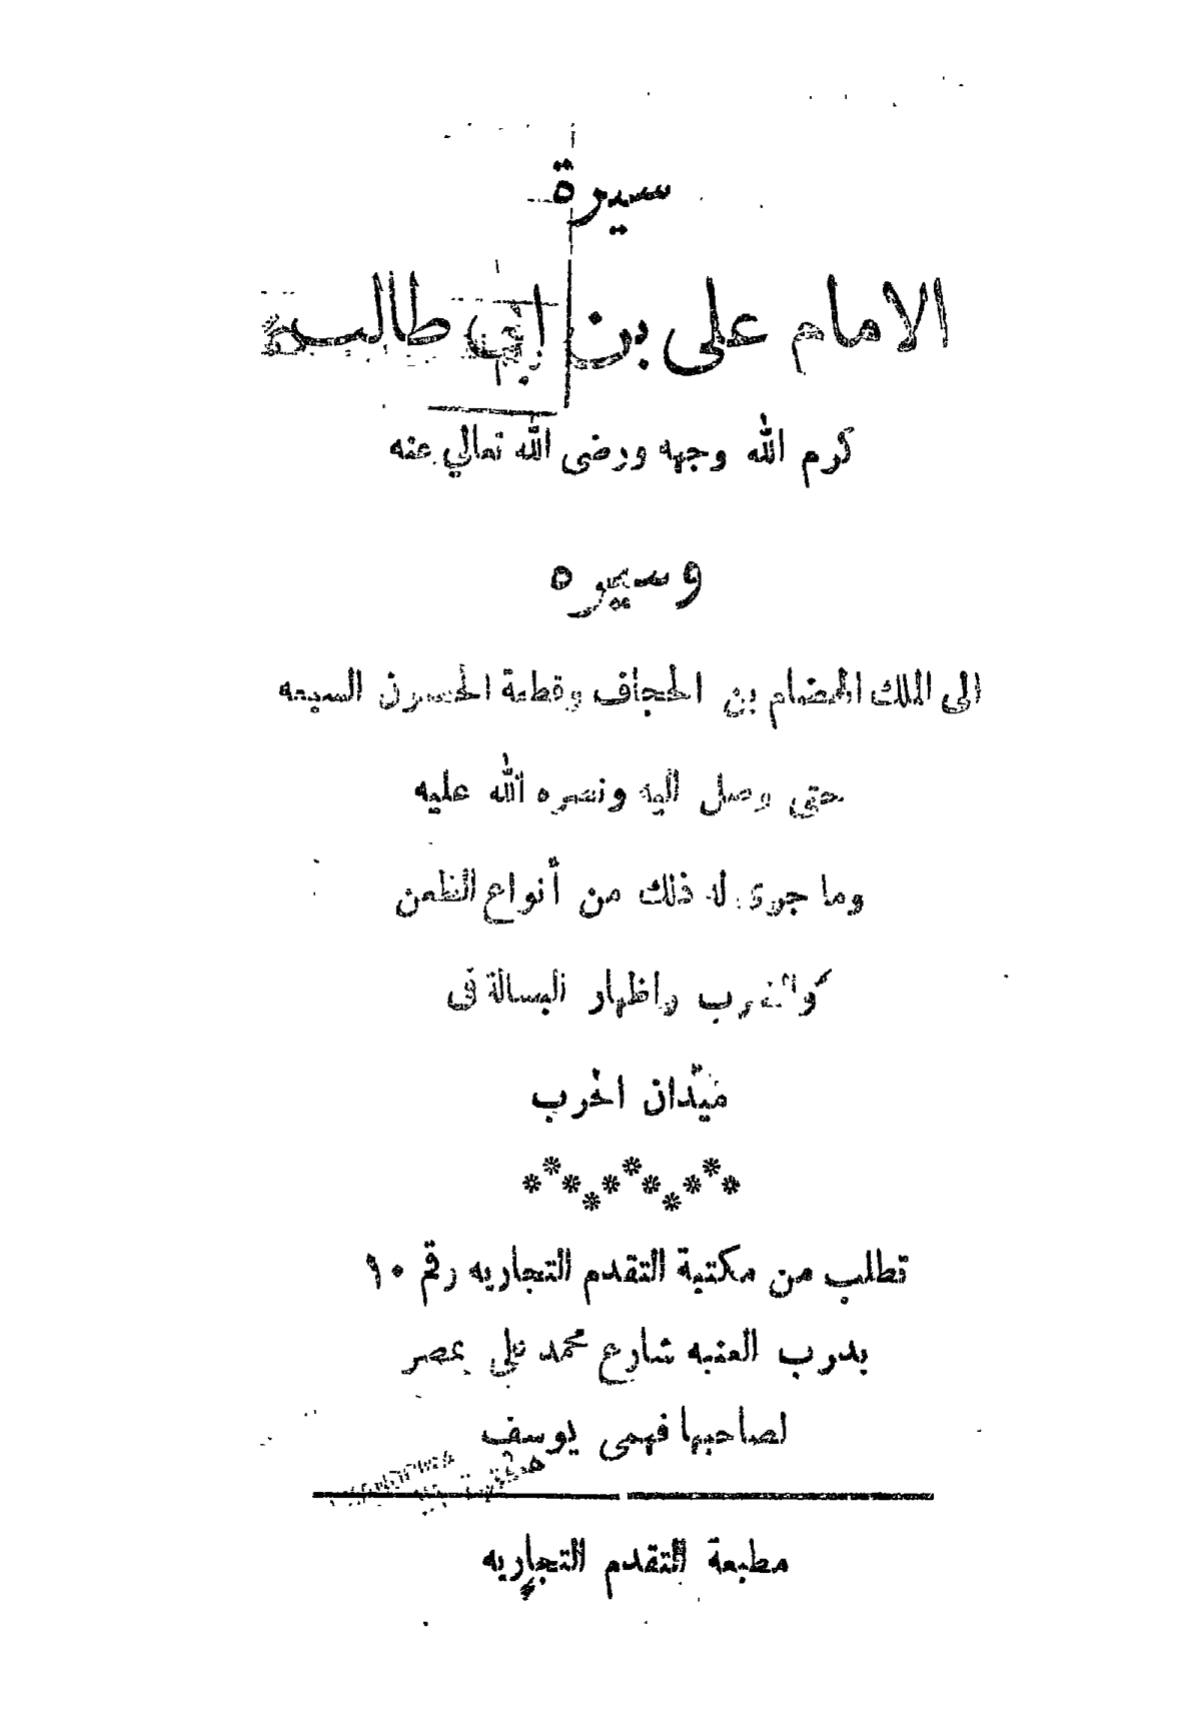 سيرة
الامام على بن ابى طالب
كرم الله وجهه ورضى الله تعالي عنه
وسيره
الى الملك الهضام بن الحجاف وقطعة الحصون السبعه
حتى وصل اليه ونصره الله عليه
وما جرى له فى ذلك من أنواع الطعن
والضرب واظهار البسالة فى
ميدان الحرب
تطلب من مكتبة التقدم التجاريه رقم ١٠
بدرب العنبه شارع محمد على بمصر
لصاحبها فهمى يوسف
مطبعة التقدم التجاريه